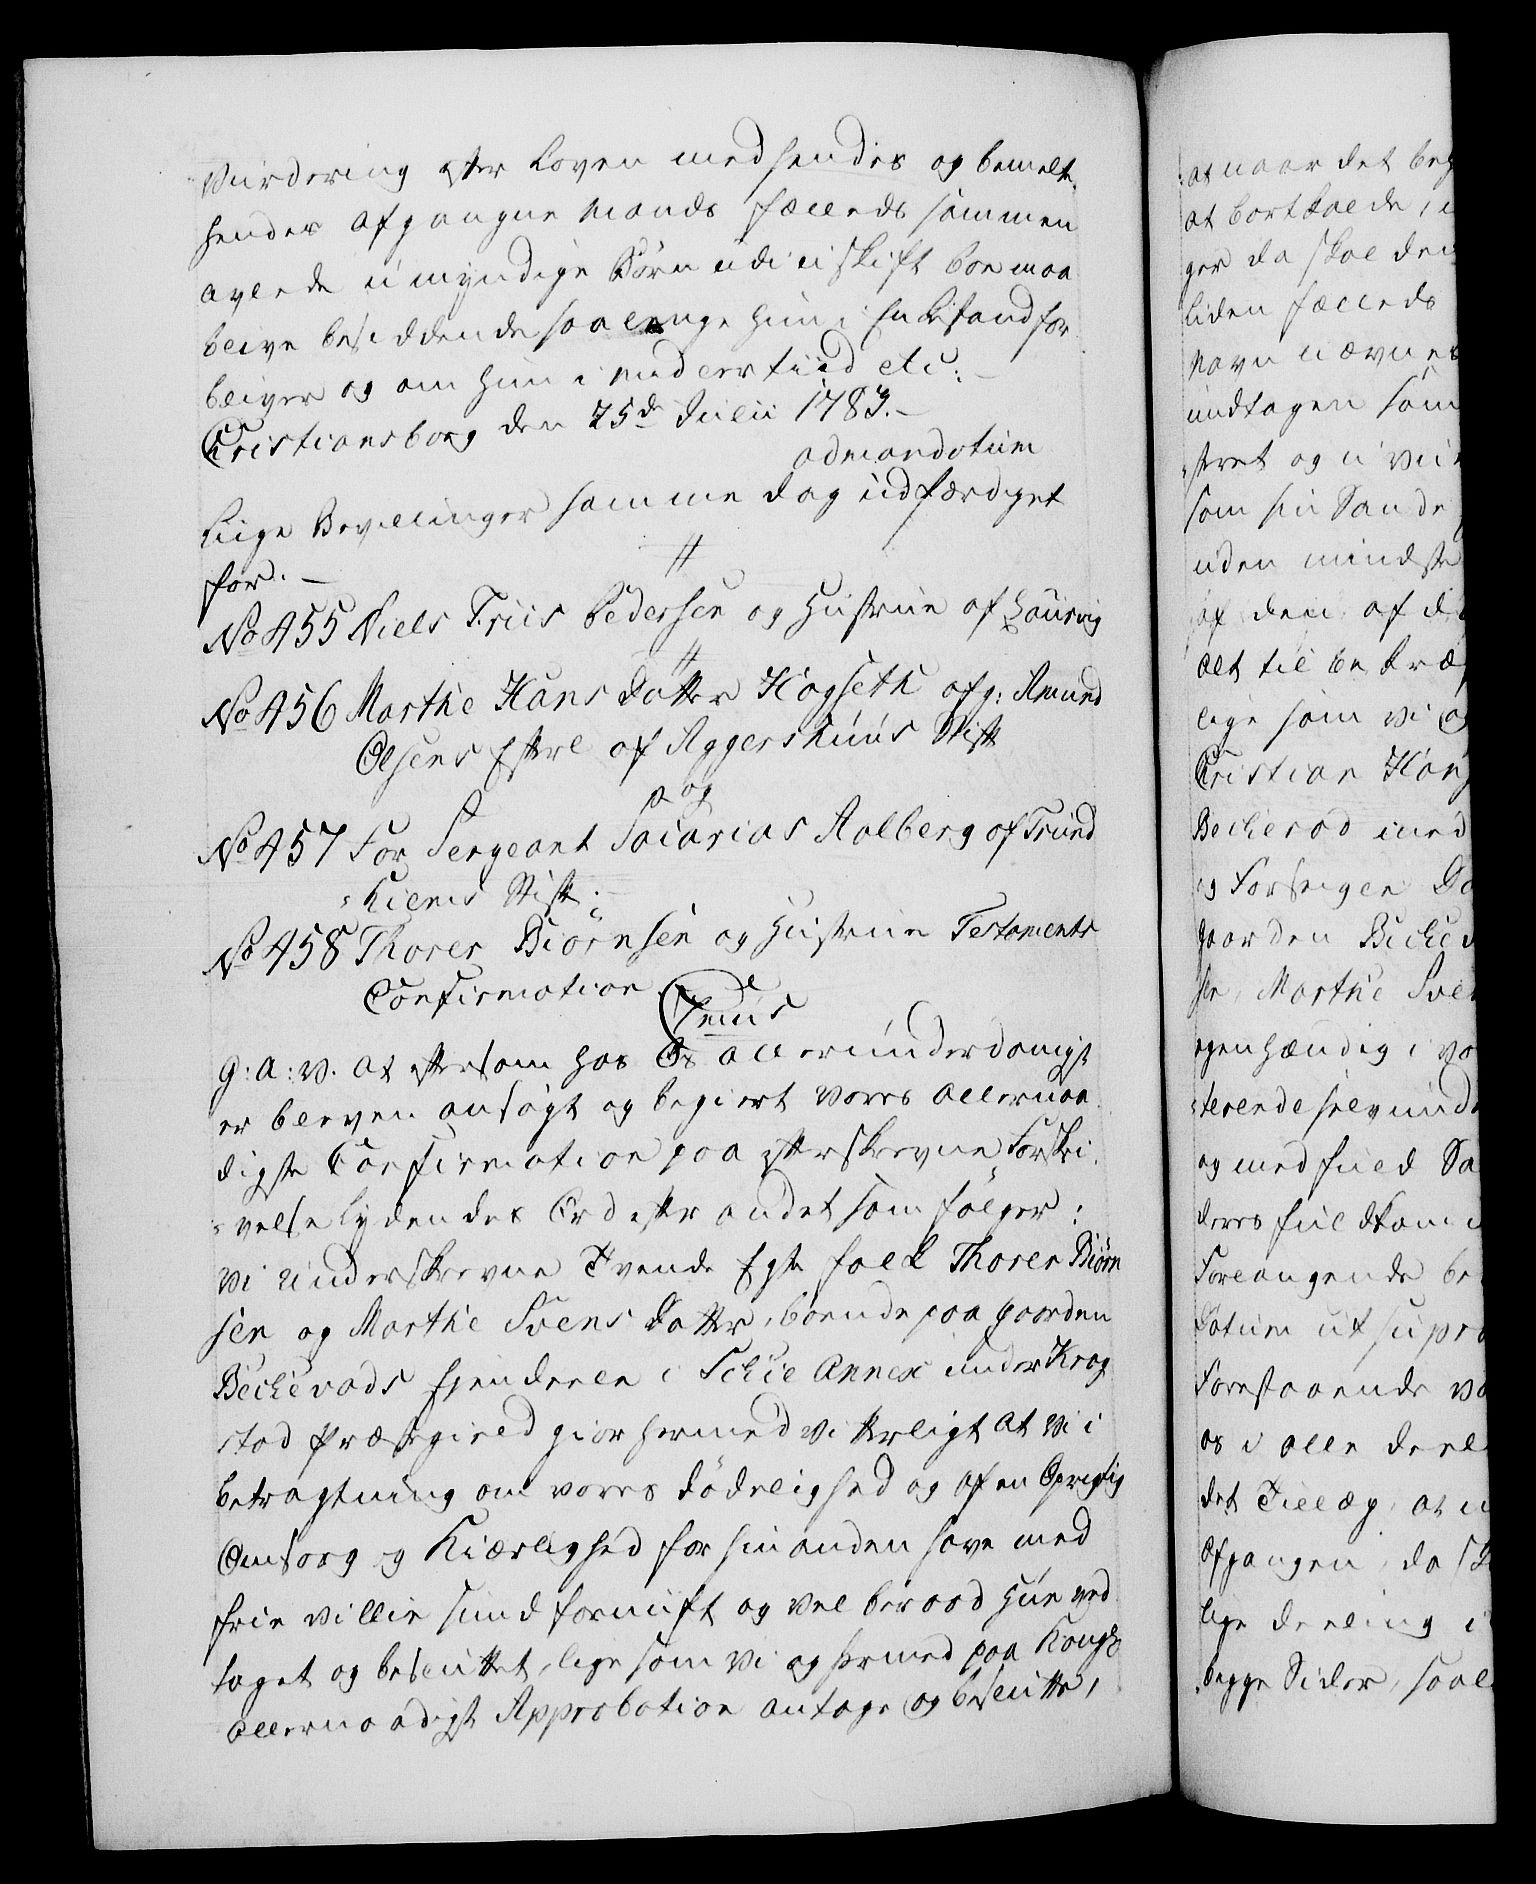 Vurdering efter Loven med hendes og bemelte
hendes afgangne Mands fælleds sammen
avlede umyndige Börn udi uskift boe maa
blive besiddende saa længe hun i Enkestand for
bliver og om hun i midlertiid etc:
Christiansborg den 25de Julii 1783.
ad mandatum
Liige Bevillinger samme dag udfærdiget
for.
No 455 Niels Friis Pedersen og Hustrue af Laurvig
No 456 Marthe Hans datter Hogseth afg: Amund
Olsens Efterl af Aggershuus Stift
og
No 457 For Sergeant Sacarias Aalberg af Trund
hiems Stift.
No 458 Thorer Biörnsen og Hustrue Testaments
Confirmation
G: A: V. at eftersom hos Os allerunderdanigst
er bleven ansögt og begiert vores allernaa
digste Confirmation paa efterskrevne Forskri
velse lydendes Ord efter andet som fölger:
Vi underskrevne Tvende Egte folk Thorer Biörn
sen og Marthe Svens datter, boende paa gaarden
Bechevads Ejendeele i Schie Annex under Krog
stad Præstegield giör hermed vitterligt at vi i
betragtning om vores dödelighed og af en Oprigtig
Omsorg og Kiærlighed for hinanden have med
frie villie sund fornuft og vel beraad Hue ved
taget og besluttet, lige som vi og hermed paa Kongl
allernaadigst Approbation antage og beslutte,
at naar det beh
at bortkalde,
ger da skal den
liden fælleds
Navn nævnes
undtagen som
som sin Sande
uden mindste
af den af d
alt til bekræf
lige som vi og
Christian Han
Becherod med
og Forseigen
gaarden Beche
Marthe Sven
egenhændig i vo
terende selv und
og med fuld Sa
deres fuldkom
Forlangende be
Datum ut supra
Forestaaende vo
os i alle deel
det Tillæg, at
Afgangen, da sk
lige deeling i
begge Sider, saal